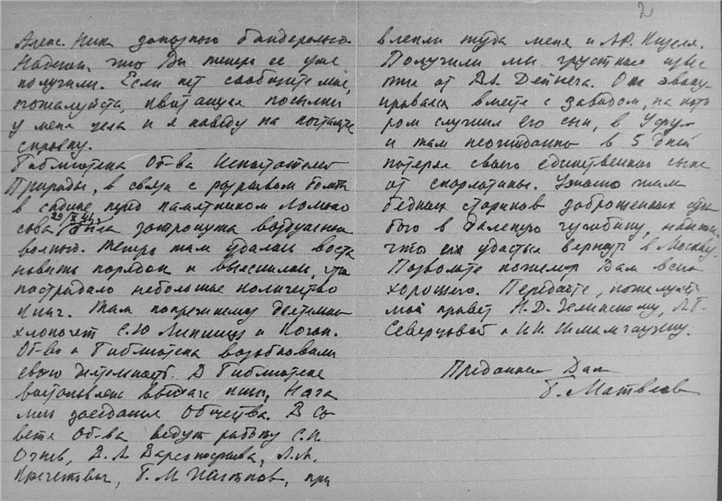 2
Алекс. Ник заказного бандеролью
Надеюсь, что Вы теперь ее уже
получили. Если нет сообщите мне,
пожалуйста, квитанция посылки
у меня цела и я наведу на почтамте
справку.
Библиотека Об-ва Испытателей
Природы, в связи с разрывом бомбы
в садике перед памятником Ломоно
сова 29/X 41 г. была затронута воздушной
волной. Теперь там удалось восста
новить порядок и выяснилось, что
пострадало небольшое количество
книг. Там попрежнему
хлопочет С.Ю Липшиц и Коган.
Об-во и Библиотека возобновили
свою деятельность. В Библиотеке
восстановлена выдача книг, нача
лись заседания Общества. В Со
вете Об-ва ведут работу С.И
Огнев, В.А Варсонофьева, Л.И.
, Б.М Житков, при
влекли туда меня и А.Ф.
Получили мы грустное изве
стие от Ал. Дейнега. Он эваку
ировался вместе с заводом, на кото
ром служил его сын, в Уфу
и там неожиданно в 5 дней
потерял своего единственного сына
от скарлатины. Ужасно жаль
бедных стариков заброшенных судь
бою в далекую чужбину,
что им удастся вернуться в Москву.
Позвольте пожелать Вам всего
хорошего. Передайте, пожалуйста
мой привет Н.Д. Зелинскому,
Северцовой и И.И Шмальгаузену.
Преданный Вам
Б. Матвеев